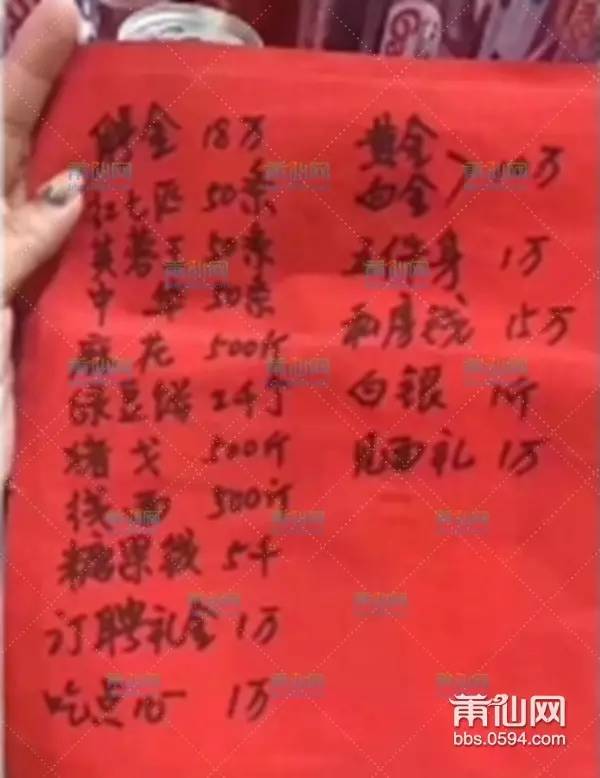 金 18万
红七匹 50条
芙蓉王 50条
中华 50条
麻花 500斤
绿豆饼 2千
猪戈 500斤
线面 500斤
糖果钱 5千
订聘礼金 1万
吃点心 1万
黄金
白金
万
五件身 1万
私房钱 15万
白银 1斤
见面礼 1万
莆仙网
bbs.0594.com